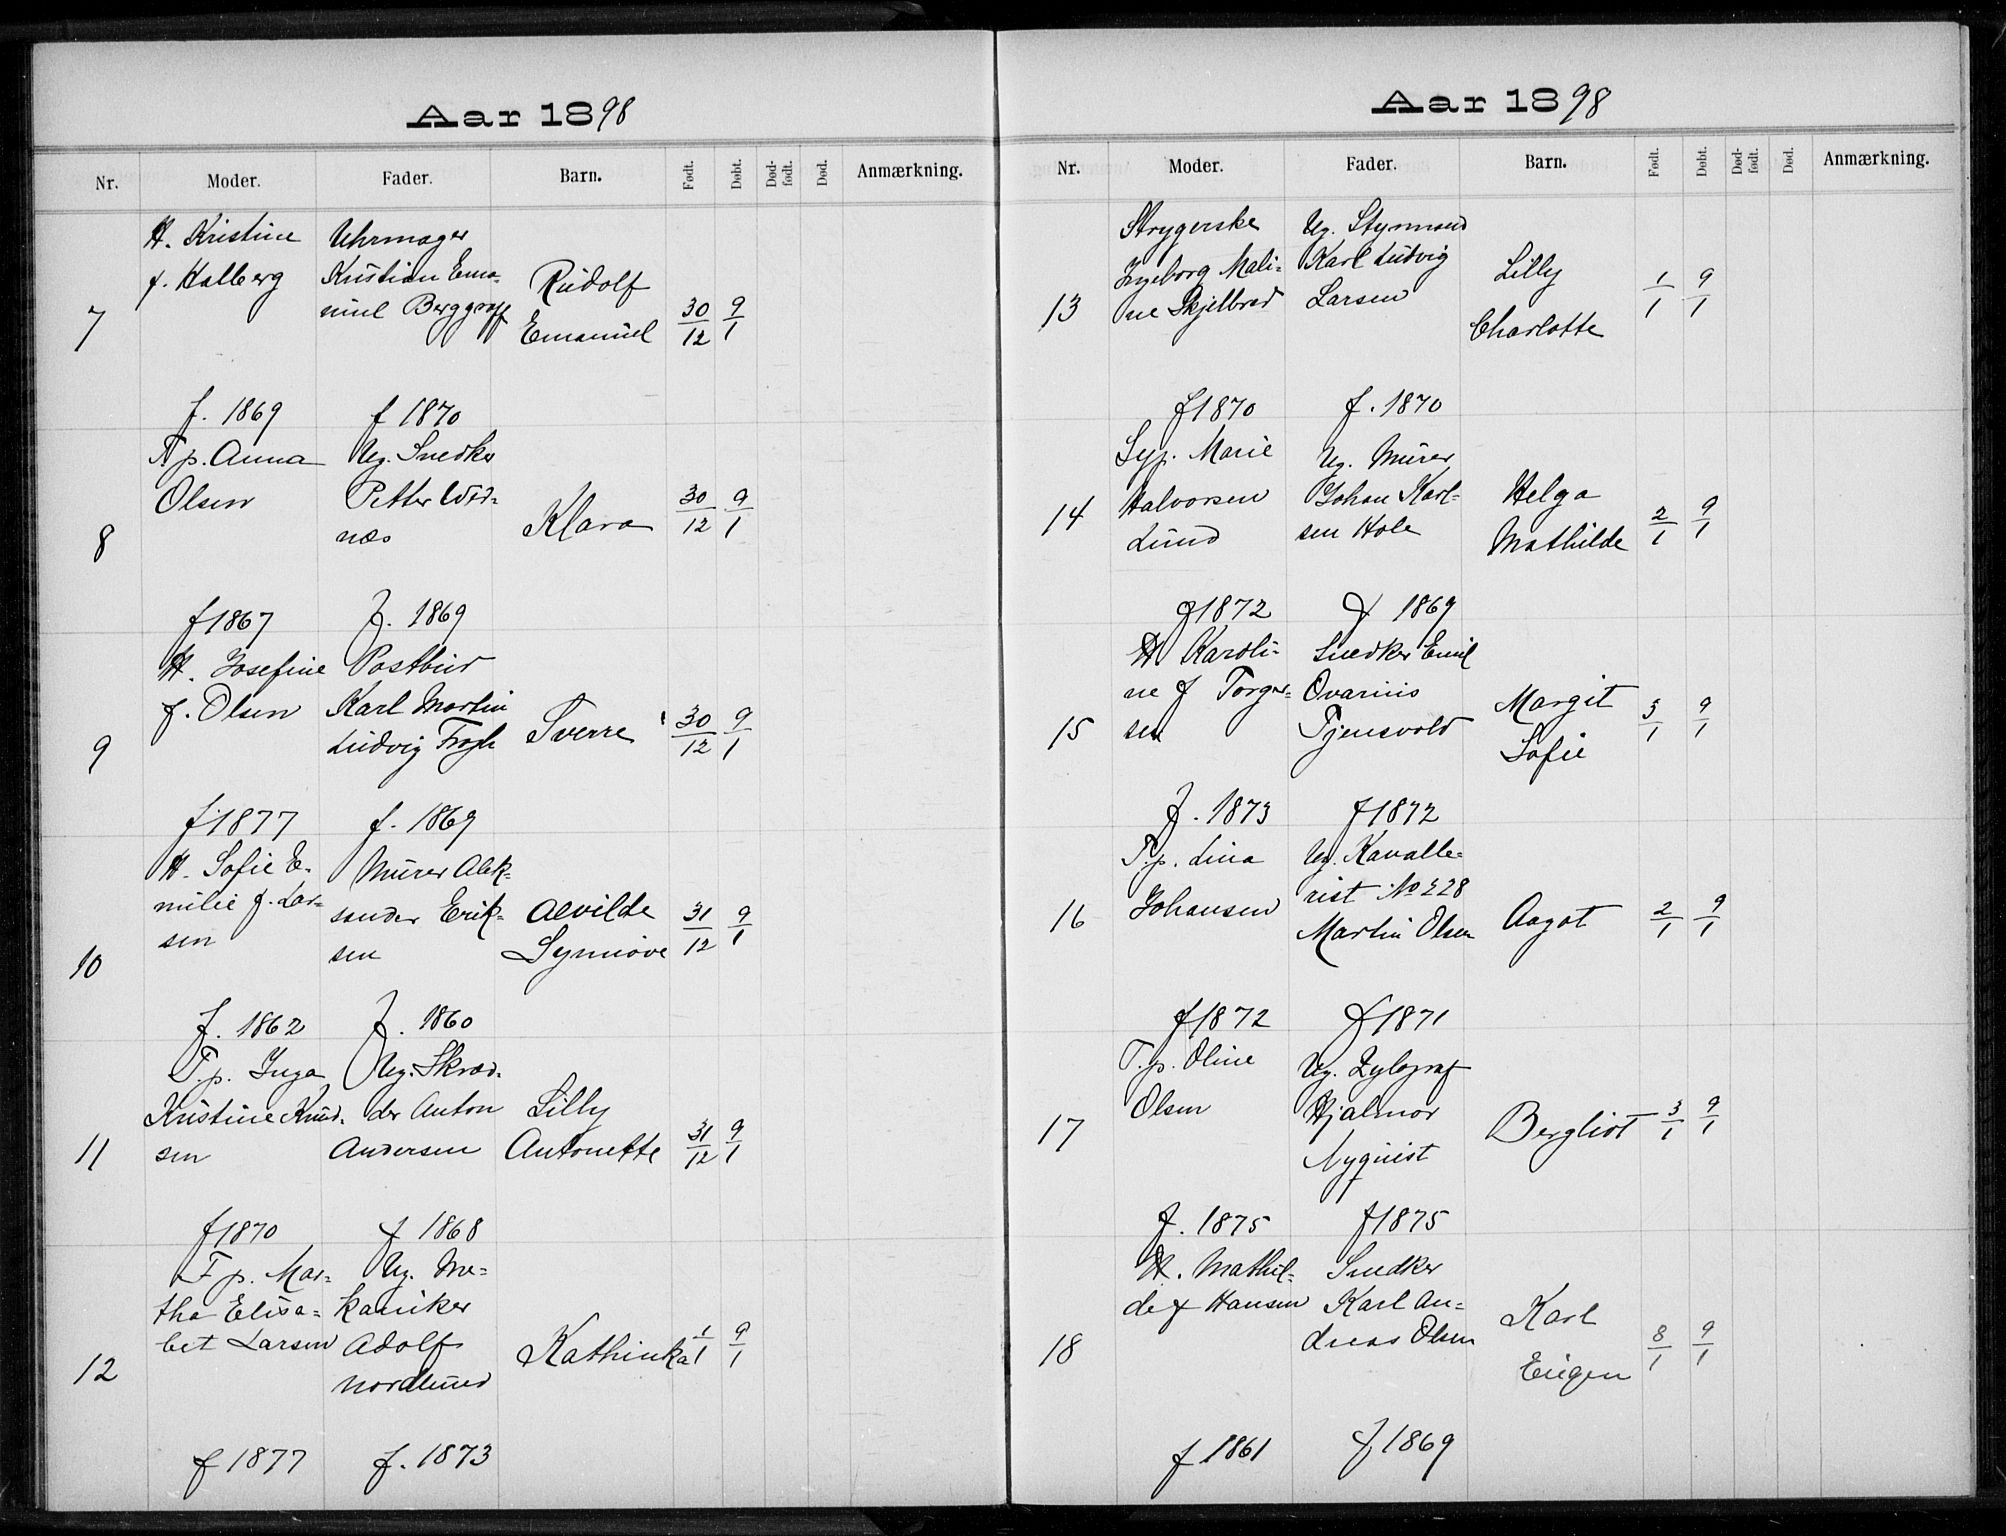 Aar 1898
Nr. Moder. Fader. Barn. Født. Døbt. Dødfødt. Død. Anmærkning.
7
H. Kristine
f. Halberg
f. 1869
Uhrmager
Kristian Ema-
nuel Berggraff
f 1870
Rudolf
Emanuel
30/12 9/1
8
T p. Anna
Olsen
f 1867
Ug. Snedker
Petter Wid-
næs
f. 1869
Klara
30/12 9/1
9
H. Josefine
f. Olsen
f 1877
Postbud
Karl Martin
Ludvig Frogh
f. 1869
Sverre
30/12 9/1
10
H. Sofie E-
milie f. Lar-
sen
f. 1862
Murer Alek-
sander Erik-
sen
f. 1860
Alvilde
Synnøve
31/12 9/1
11
T.p. Inga
Kristine Knud-
sen
f 1870
Ug. Skræd-
der Anton
Andersen
f 1868
Lilly
Antonette
31/12 9/1
12
T p. Mar-
tha Elisa-
bet Larsen
f 1877
Ug. Me-
kaniker
Adolf
Nordlund
f. 1873
Kathinka
1/1 9/1
Aar 1898
Nr. Moder. Fader. Barn. Født. Døbt. Dødfødt. Død. Anmærkning.
13
Strygerske
Ingeborg Mali-
ne Skjelbred
f 1870
Ug. Styrmand
Karl Ludvig
Larsen
f. 1870
Lilly
Charlotte
1/1 9/1
14
Syp. Marie
Halvorsen
Lund
f 1872
Ug. Murer
Johan Karl-
sen Hole
f 1869
Helga
Mathilde
2/1 9/1
15
H Karoli-
ne f Torger-
sen
f. 1873
Snedker Emil
Ovarius
Tjensvold
f 1872
Margit
Sofie
3/1 9/1
16
T.p. Lina
Johansen
f 1872
Ug. Kavalle-
rist No 228
Martin Olsen
f 1871
Aagot
2/1 9/1
17
T.p. Oline
Olsen
f. 1875
Ug. Xylograf
Hjalmar
Nyquist
f 1875
Bergliot
3/1 9/1
18
H. Mathil-
de f Hansen
f 1861
Snedker
Karl An-
dreas Olsen
f 1869
Karl
Eugen
8/1 9/1